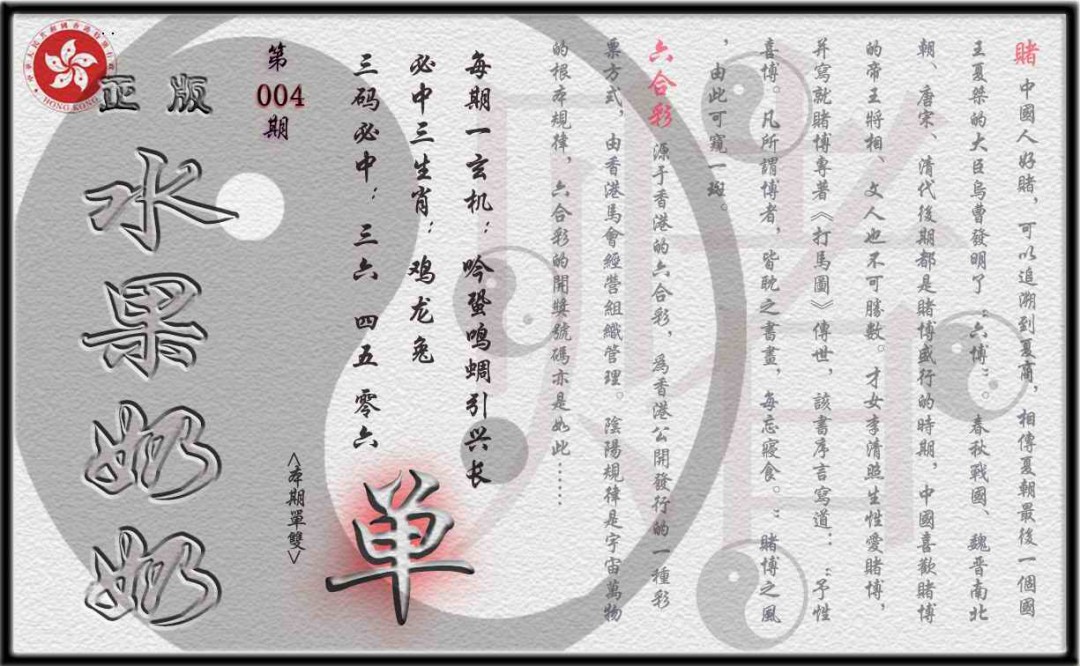 賭 中國人好賭，可以追溯到夏商，相傳夏朝最後一個國
王夏桀的大臣烏曹發明了〝六博〞。春秋戰國、魏晉南北
朝、唐宋、清代後期都是賭博盛行的時期，中國喜歡賭博
的帝王將相、文人也不可勝數。才女李清照生性愛賭博，
并寫就賭博專著《打馬圖》傳世，該書序言寫道：〝予性
喜博。凡所謂博者，皆耽之晝晝，每忘寢食。〞賭博之風
，由此可窺一斑。
六合彩 源于香港的六合彩，為香港公開發行的一種彩
票方式，由香港馬會經營組織管理。陰陽規律是宇宙萬物
的根本規律，六合彩的開獎號碼亦是如此……
每期一玄机：吟蛩鸣蜩引兴长
必中三生肖：鸡龙兔
三码必中：三六 四五 零六
单
<本期單雙>
第
004
期
正版
水果奶奶
HONG KONG